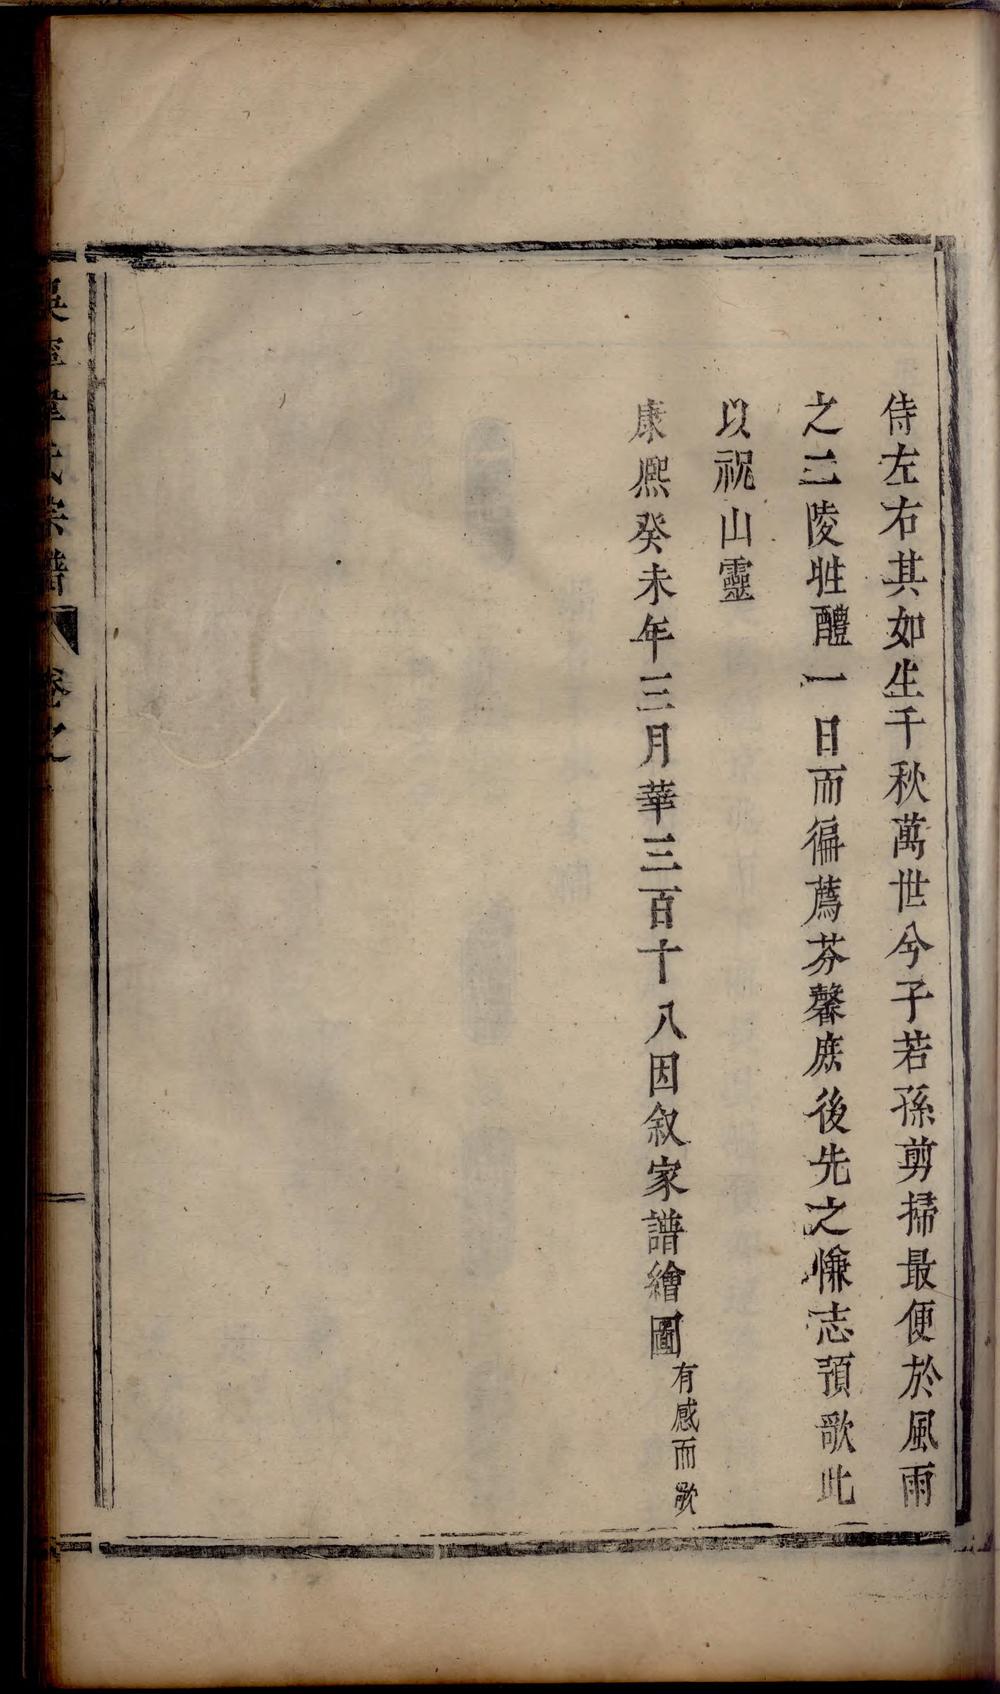 侍左右其如生千秋萬世兮子若孫剪掃最便於風雨
之二陵牲醴一日而徧薦芬馨庶後先之慊志預歌此
以祝山靈
康熙癸未年三月華三百十八因叙家譜繪圖有感而歌
氏宗譜
卷之